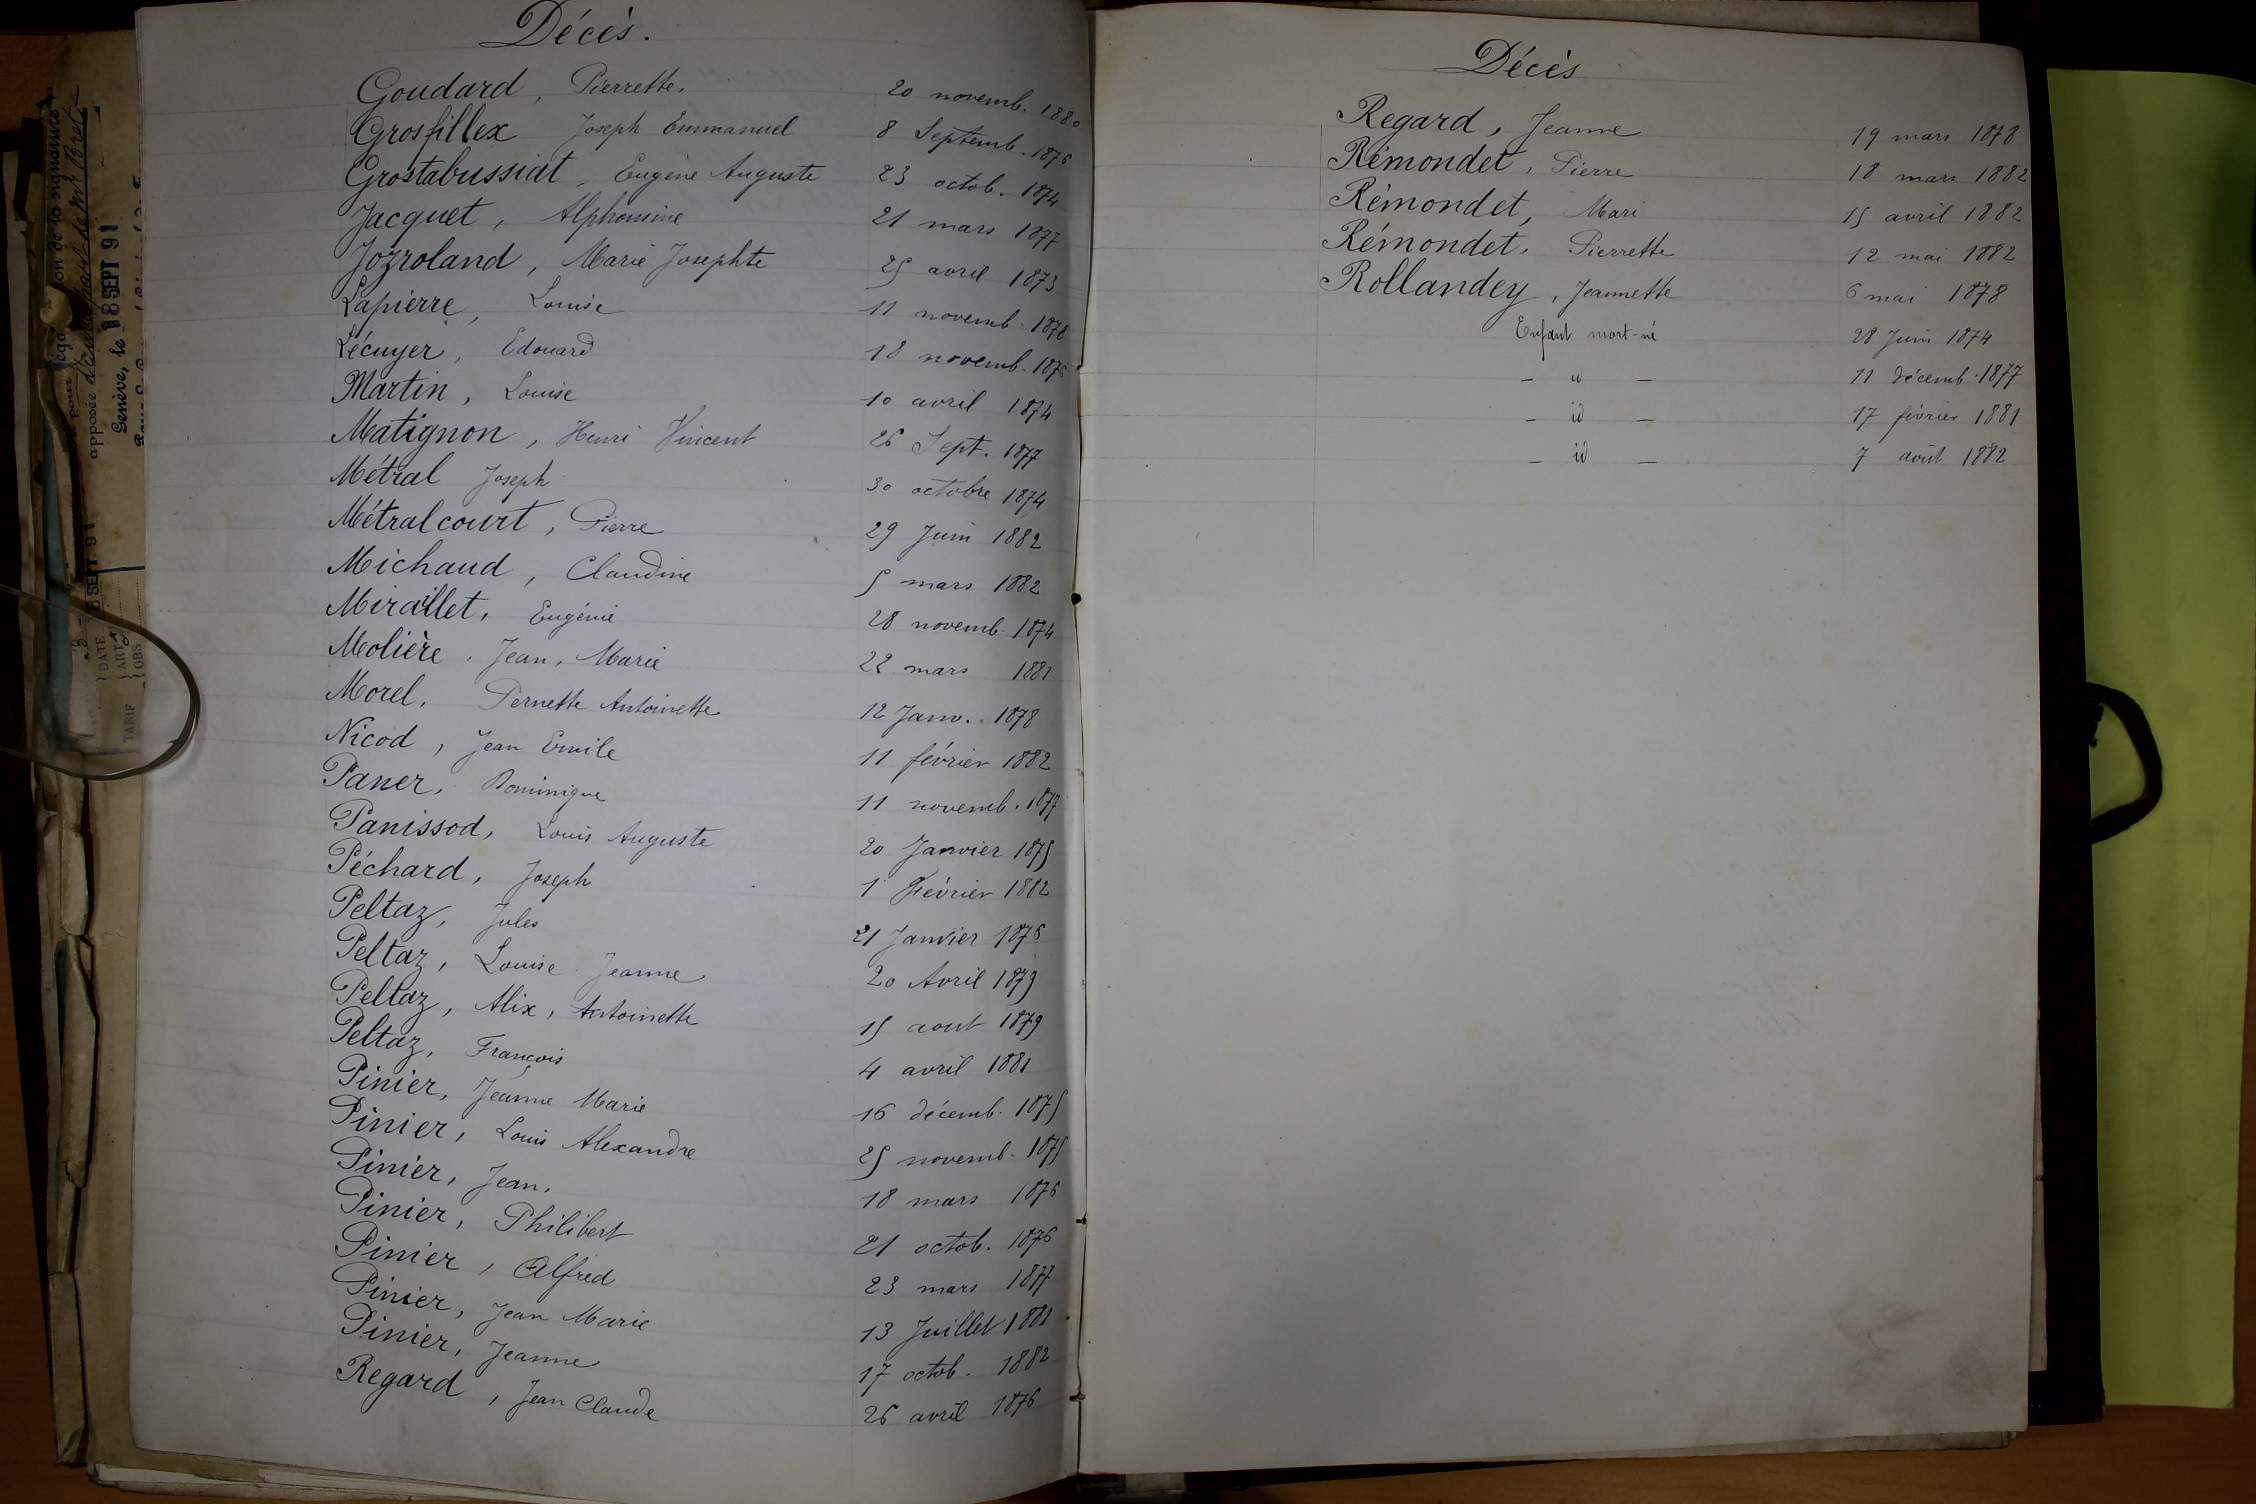 Décès.
Goudard, Pierrette. 20 novemb. 1880
Grosfillex Joseph Emmanuel 8 Septemb. 1876
Grostabussiat, Eugène Auguste 23 octob. 1874
Jacquet, Alphonsine 21 mars 1877
Jozroland, Marie Josephte 25 avril 1873
Lapierre, Louise 11 novemb. 1878
Lécuyer, Edouard 18 novemb. 1876
Martin, Louise 10 avril 1874
Matignon, Henri Vincent 26 Sept. 1877
Métral Joseph 30 octobre 1874
Métralcourt, Pierre 29 Juin 1882
Michaud, Claudine 5 mars 1882
Miraillet, Eugénie 28 novemb. 1874
Molière, Jean, Marie 22 mars 1881
Morel, Pernette Antoinette 12 Janv. 1878
Nicod, Jean Emile 11 février 1882
Paner, Dominique 11 novemb. 1877
Panissod, Louis Auguste 20 Janvier 1875
Péchard, Joseph 1 Février 1882
Peltaz, Jules 21 Janvier 1876
Peltaz, Louise Jeanne 20 Avril 1879
Peltaz, Alix, Antoinette 15 aout 1879
Peltaz, François 4 avril 1881
Pinier, Jeanne Marie 16 décemb. 1875
Pinier, Louis Alexandre 25 novemb. 1875
Pinier, Jean. 18 mars 1876
Pinier, Philibert 21 octob. 1876
Pinier, Alfred 23 mars 1877
Pinier, Jean Marie 13 Juillet 1881
Pinier, Jeanne 17 octob. 1882
Regard, Jean Claude 26 avril 1876
Décès
Regard, Jeanne 19 mars 1878
Rémondet, Pierre 18 mars 1882
Rémondet, Mari 15 avril 1882
Rémondet, Pierrette 12 mai 1882
Rollandey, Jeannette 6 mai 1878
Enfant mort-né 28 Juin 1874
– id – 11 décemb. 1877
– id – 17 février 1881
– id – 7 août 1882
apposée
Genève, le 18 SEPT 91
DATE
ART
OBS
TARIF